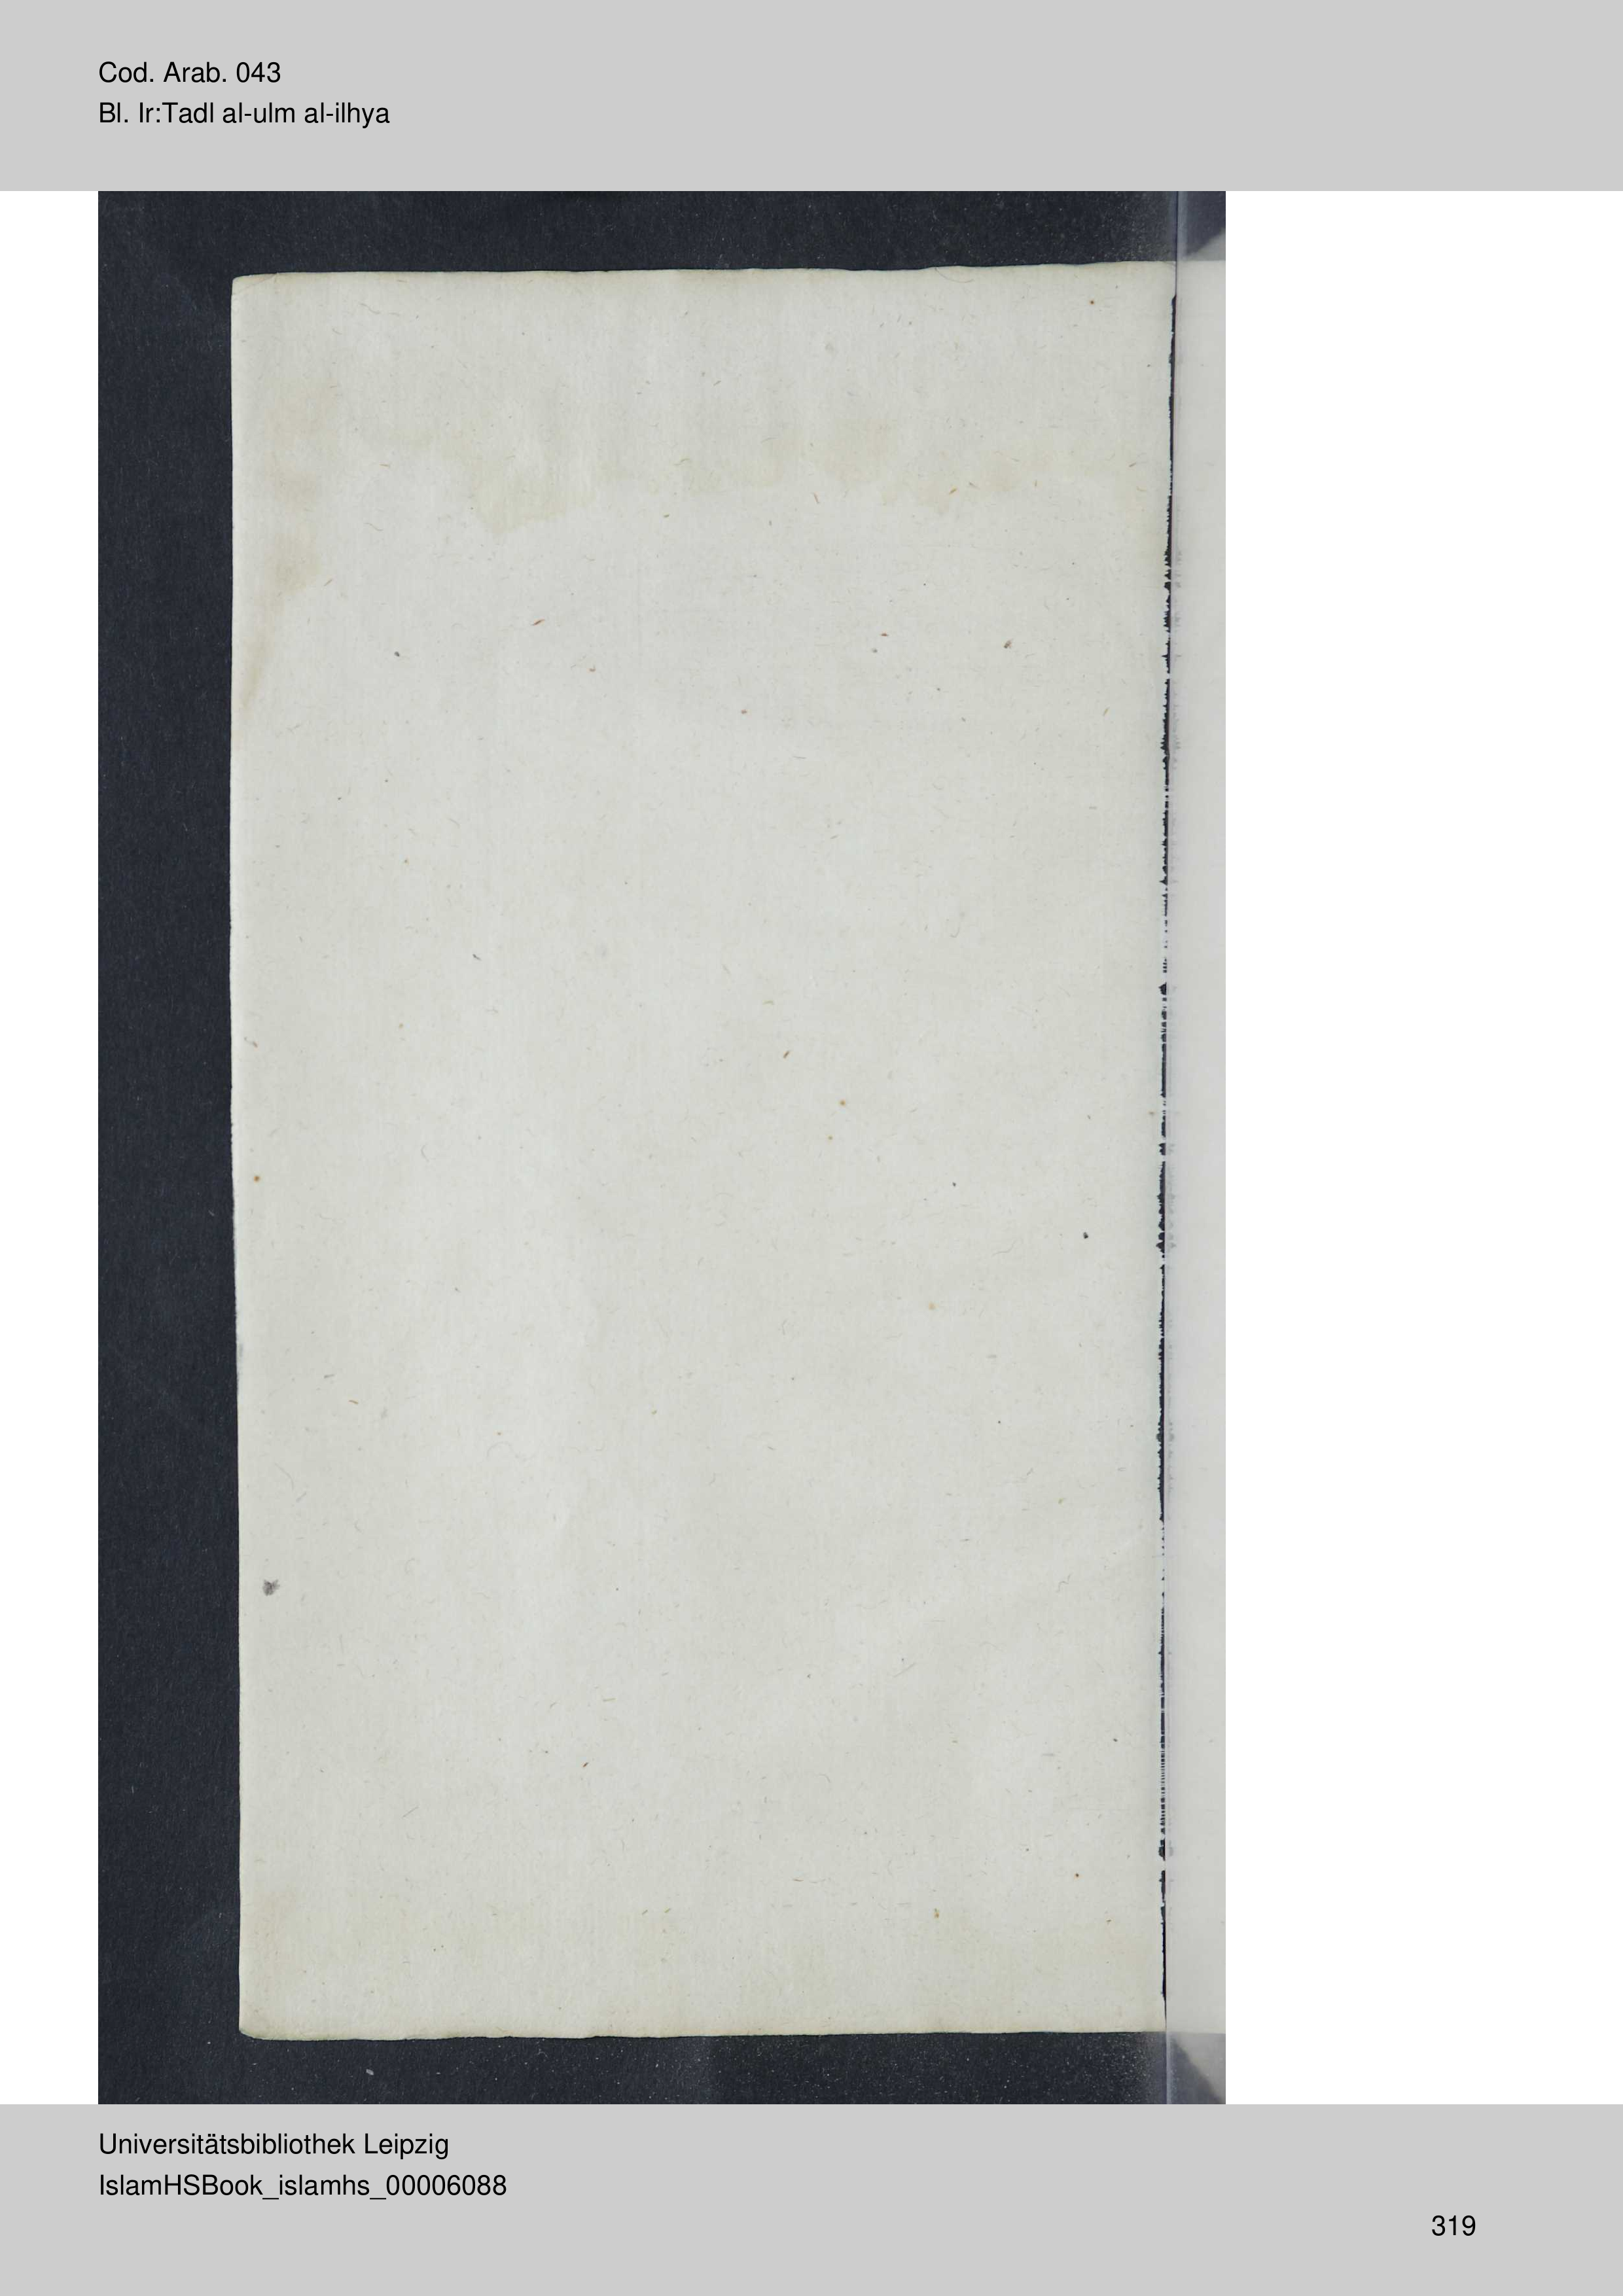 Cod. Arab. 043
Bl. Ir:Tadl al-ulm al-ilhya
Universitätsbibliothek Leipzig
IslamHSBook_islamhs_00006088
319